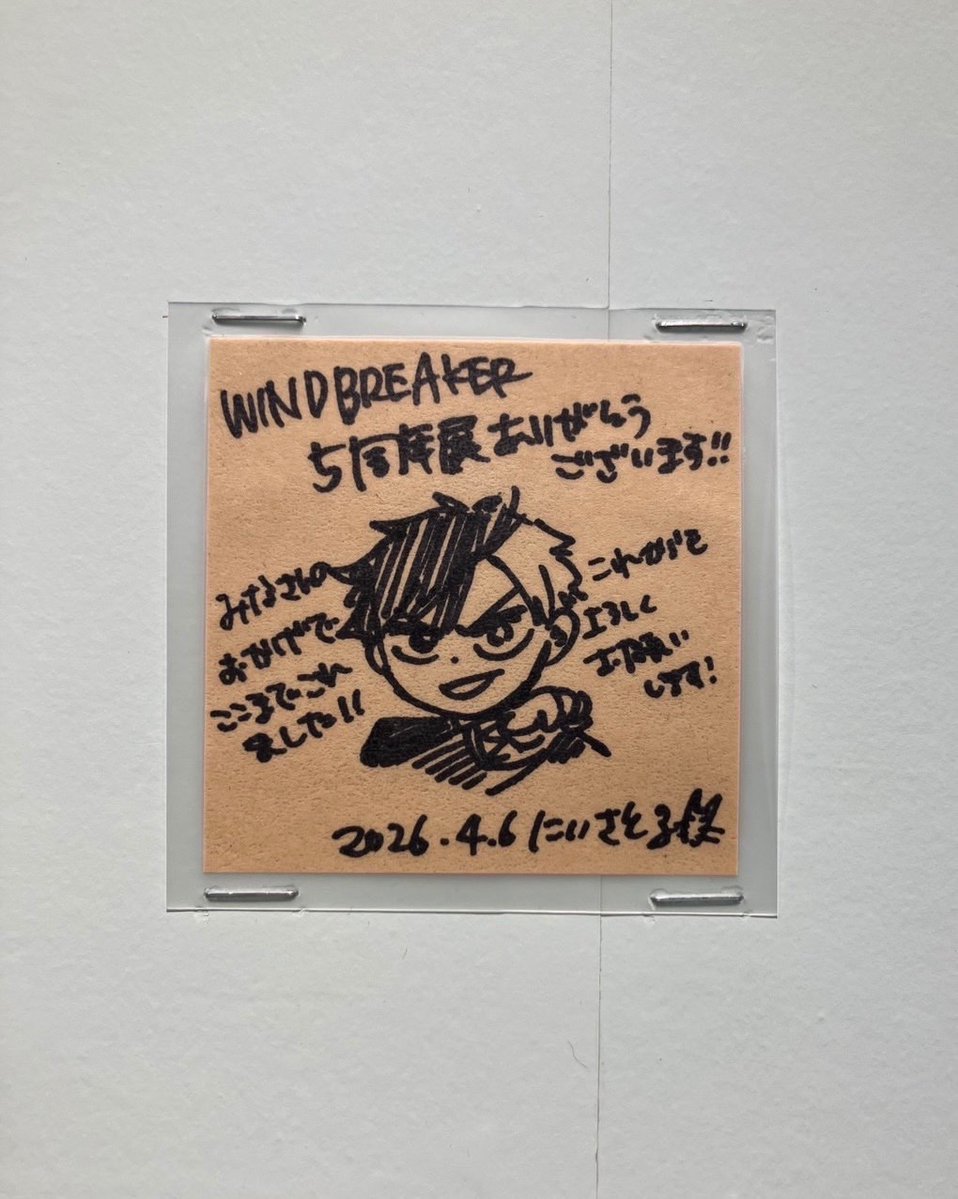 WINDBREAKER
5周年展ありがとう
ございます!!
みなさんの
おかげで
ここまでこれ
ました!!
これからも
よろしく
お願い
します!
2026.4.6 にいさとる